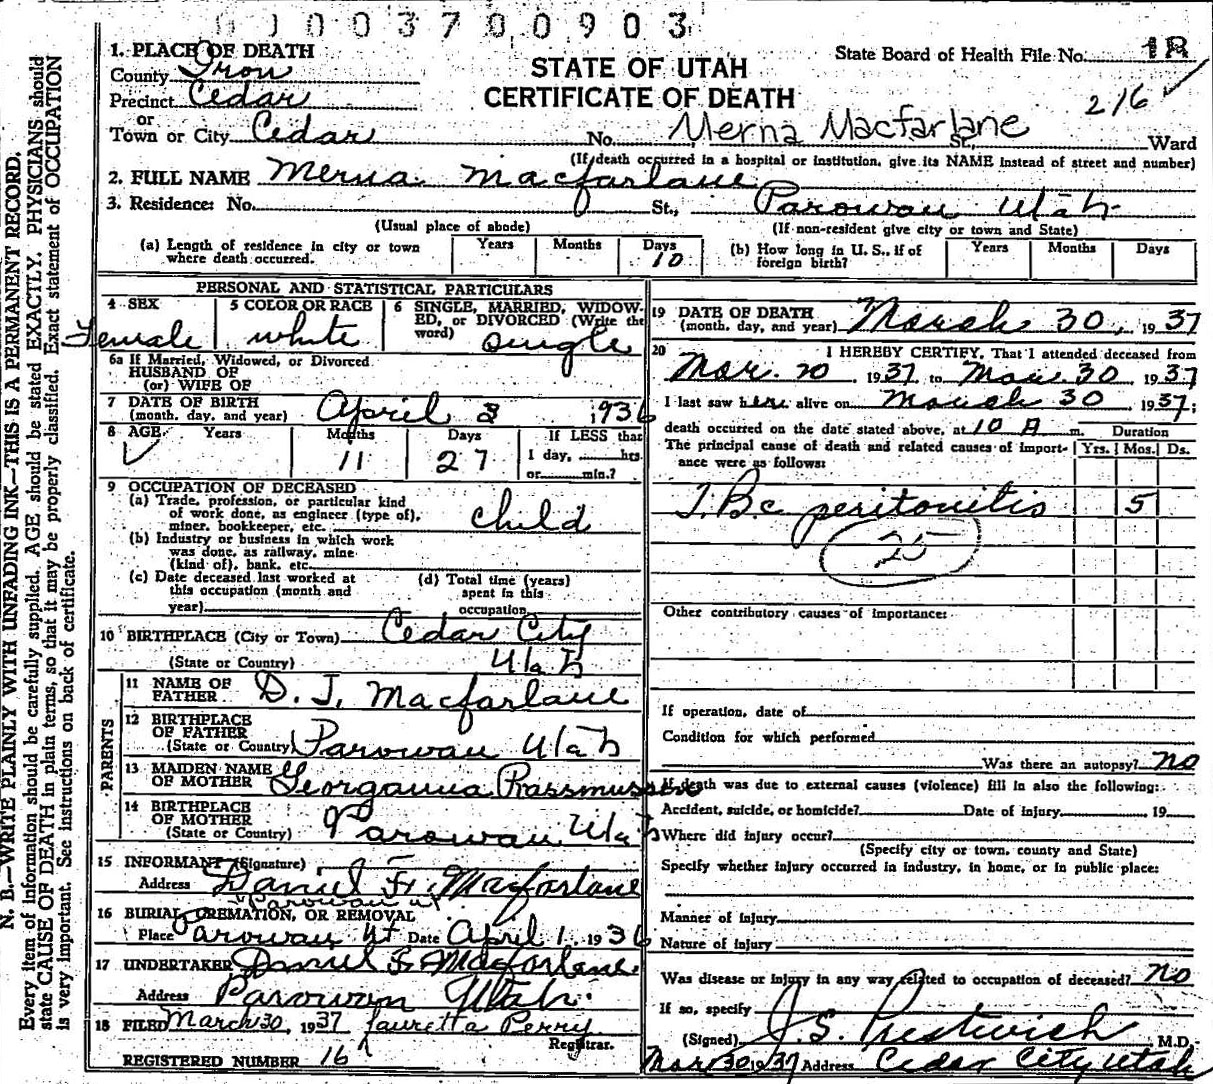 0003700903
1. PLACE OF DEATH
County Iron
Precinct Cedar
or
Town or City Cedar
STATE OF UTAH
CERTIFICATE OF DEATH
State Board of Health File No. 18
216
No. Merna Macfarlane St., Ward
(If death occurred in a hospital or institution, give its NAME instead of street and number)
2. FULL NAME Merna Macfarlane
3. Residence: No. St., Parowan Utah
(Usual place of abode) (If non-resident give city or town and State)
(a) Length of residence in city or town where death occurred. Years Months Days 10 (b) How long in U. S., if of foreign birth? Years Months Days
PERSONAL AND STATISTICAL PARTICULARS
4 SEX Female
5 COLOR OR RACE white
6 SINGLE, MARRIED, WIDOWED, or DIVORCED (Write the word) single
6a If Married, Widowed, or Divorced
HUSBAND OF
(or) WIFE OF
7 DATE OF BIRTH
(month, day, and year) April 3 1936
8 AGE Years Months 11 Days 27 If LESS than
1 day, hrs.
or min.?
9 OCCUPATION OF DECEASED
(a) Trade, profession, or particular kind
of work done, as engineer (type of),
miner, bookkeeper, etc. child
(b) Industry or business in which work
was done, as railway, mine
(kind of), bank, etc.
(c) Date deceased last worked at
this occupation (month and
year)
(d) Total time (years)
spent in this
occupation
10 BIRTHPLACE (City or Town) Cedar City
(State or Country) Utah
PARENTS
11 NAME OF
FATHER D. J. Macfarlane
12 BIRTHPLACE
OF FATHER
(State or Country) Parowan Utah
13 MAIDEN NAME
OF MOTHER Georganna Rassmussen
14 BIRTHPLACE
OF MOTHER
(State or Country) Parowan Utah
15 INFORMANT (Signature) Daniel F. Macfarlane
Address Parowan Ut
16 BURIAL, CREMATION, OR REMOVAL
Place Parowan Ut Date April 1, 1936
17 UNDERTAKER Daniel F. Macfarlane
Address Parowan Utah
18 FILED March 30, 1937 Lauretta Perry
Registrar.
REGISTERED NUMBER 16
19 DATE OF DEATH
(month, day, and year) March 30, 1937
20 I HEREBY CERTIFY, That I attended deceased from
Mar. 20 1937 to Mar 30 1937
I last saw her alive on March 30 1937;
death occurred on the date stated above, at 10 A m. Duration
The principal cause of death and related causes of importance were as follows: Yrs. Mos. Ds.
T.Bc peritonitis 5
25
Other contributory causes of importance:
If operation, date of
Condition for which performed
Was there an autopsy? no
If death was due to external causes (violence) fill in also the following:
Accident, suicide, or homicide? Date of injury 19
Where did injury occur?
(Specify city or town, county and State)
Specify whether injury occurred in industry, in home, or in public place:
Manner of injury
Nature of injury
Was disease or injury in any way related to occupation of deceased? no
If so, specify
(Signed) J. S. Prestwich M.D.
Mar 30 1937 Address Cedar City Utah
N. B.—WRITE PLAINLY WITH UNFADING INK—THIS IS A PERMANENT RECORD.
Every item of information should be carefully supplied. AGE should be stated EXACTLY. PHYSICIANS should
state CAUSE OF DEATH in plain terms, so that it may be properly classified. Exact statement of OCCUPATION
is very important. See instructions on back of certificate.